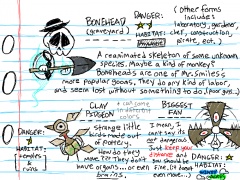 BONEHEAD
(graveyard)
DANGER:
HABITAT:
DYNAMIC
(other forms
include:
laboratory, garden,
chef, construction,
pirate, ect.)
A reanimated skeleton of some unknown
species. Maybe a kind of monkey?
Boneheads are one of Mr. Smiley's
more popular goons. They do any kind of labor,
and seem lost without something to do (poor guys...)
CLAY
PIDGEON
can come
in different
colors
DANGER:
HABITAT:
temples
ruins
Strange little
birds made out
of pottery.
How do they
move??? They don't
have organs... or even
brains.
BIGGEST
FAN
I mean, I
can't say its
not dangerous.
Just keep your
distance and
you should be
fine. (It doesn't
even move...)
DANGER:
HABITAT: